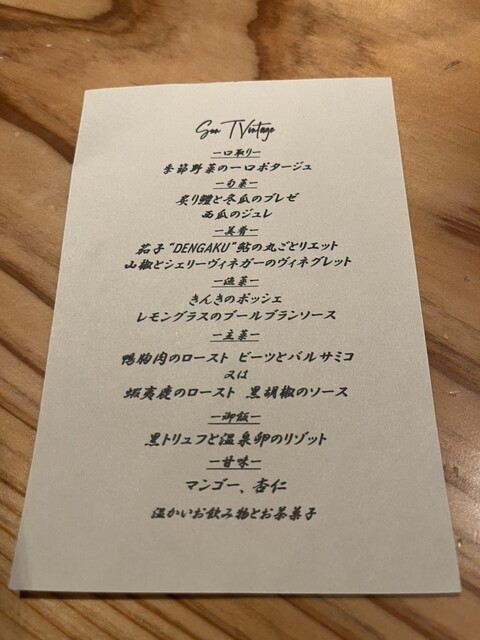 Son TVintage
ー口取りー
季節野菜の一口ポタージュ
ー旬菜ー
炙り鱧と冬瓜のブレゼ
西瓜のジュレ
ー美肴ー
茄子"DENGAKU"鮎の丸ごとリエット
山椒とシェリーヴィネガーのヴィネグレット
ー温菜ー
きんきのポッシェ
レモングラスのブールブランソース
ー主菜ー
鴨胸肉のロースト ビーツとバルサミコ
又は
蝦夷鹿のロースト 黒胡椒のソース
ー御飯ー
黒トリュフと温泉卵のリゾット
ー甘味ー
マンゴー、杏仁
温かいお飲み物とお茶菓子